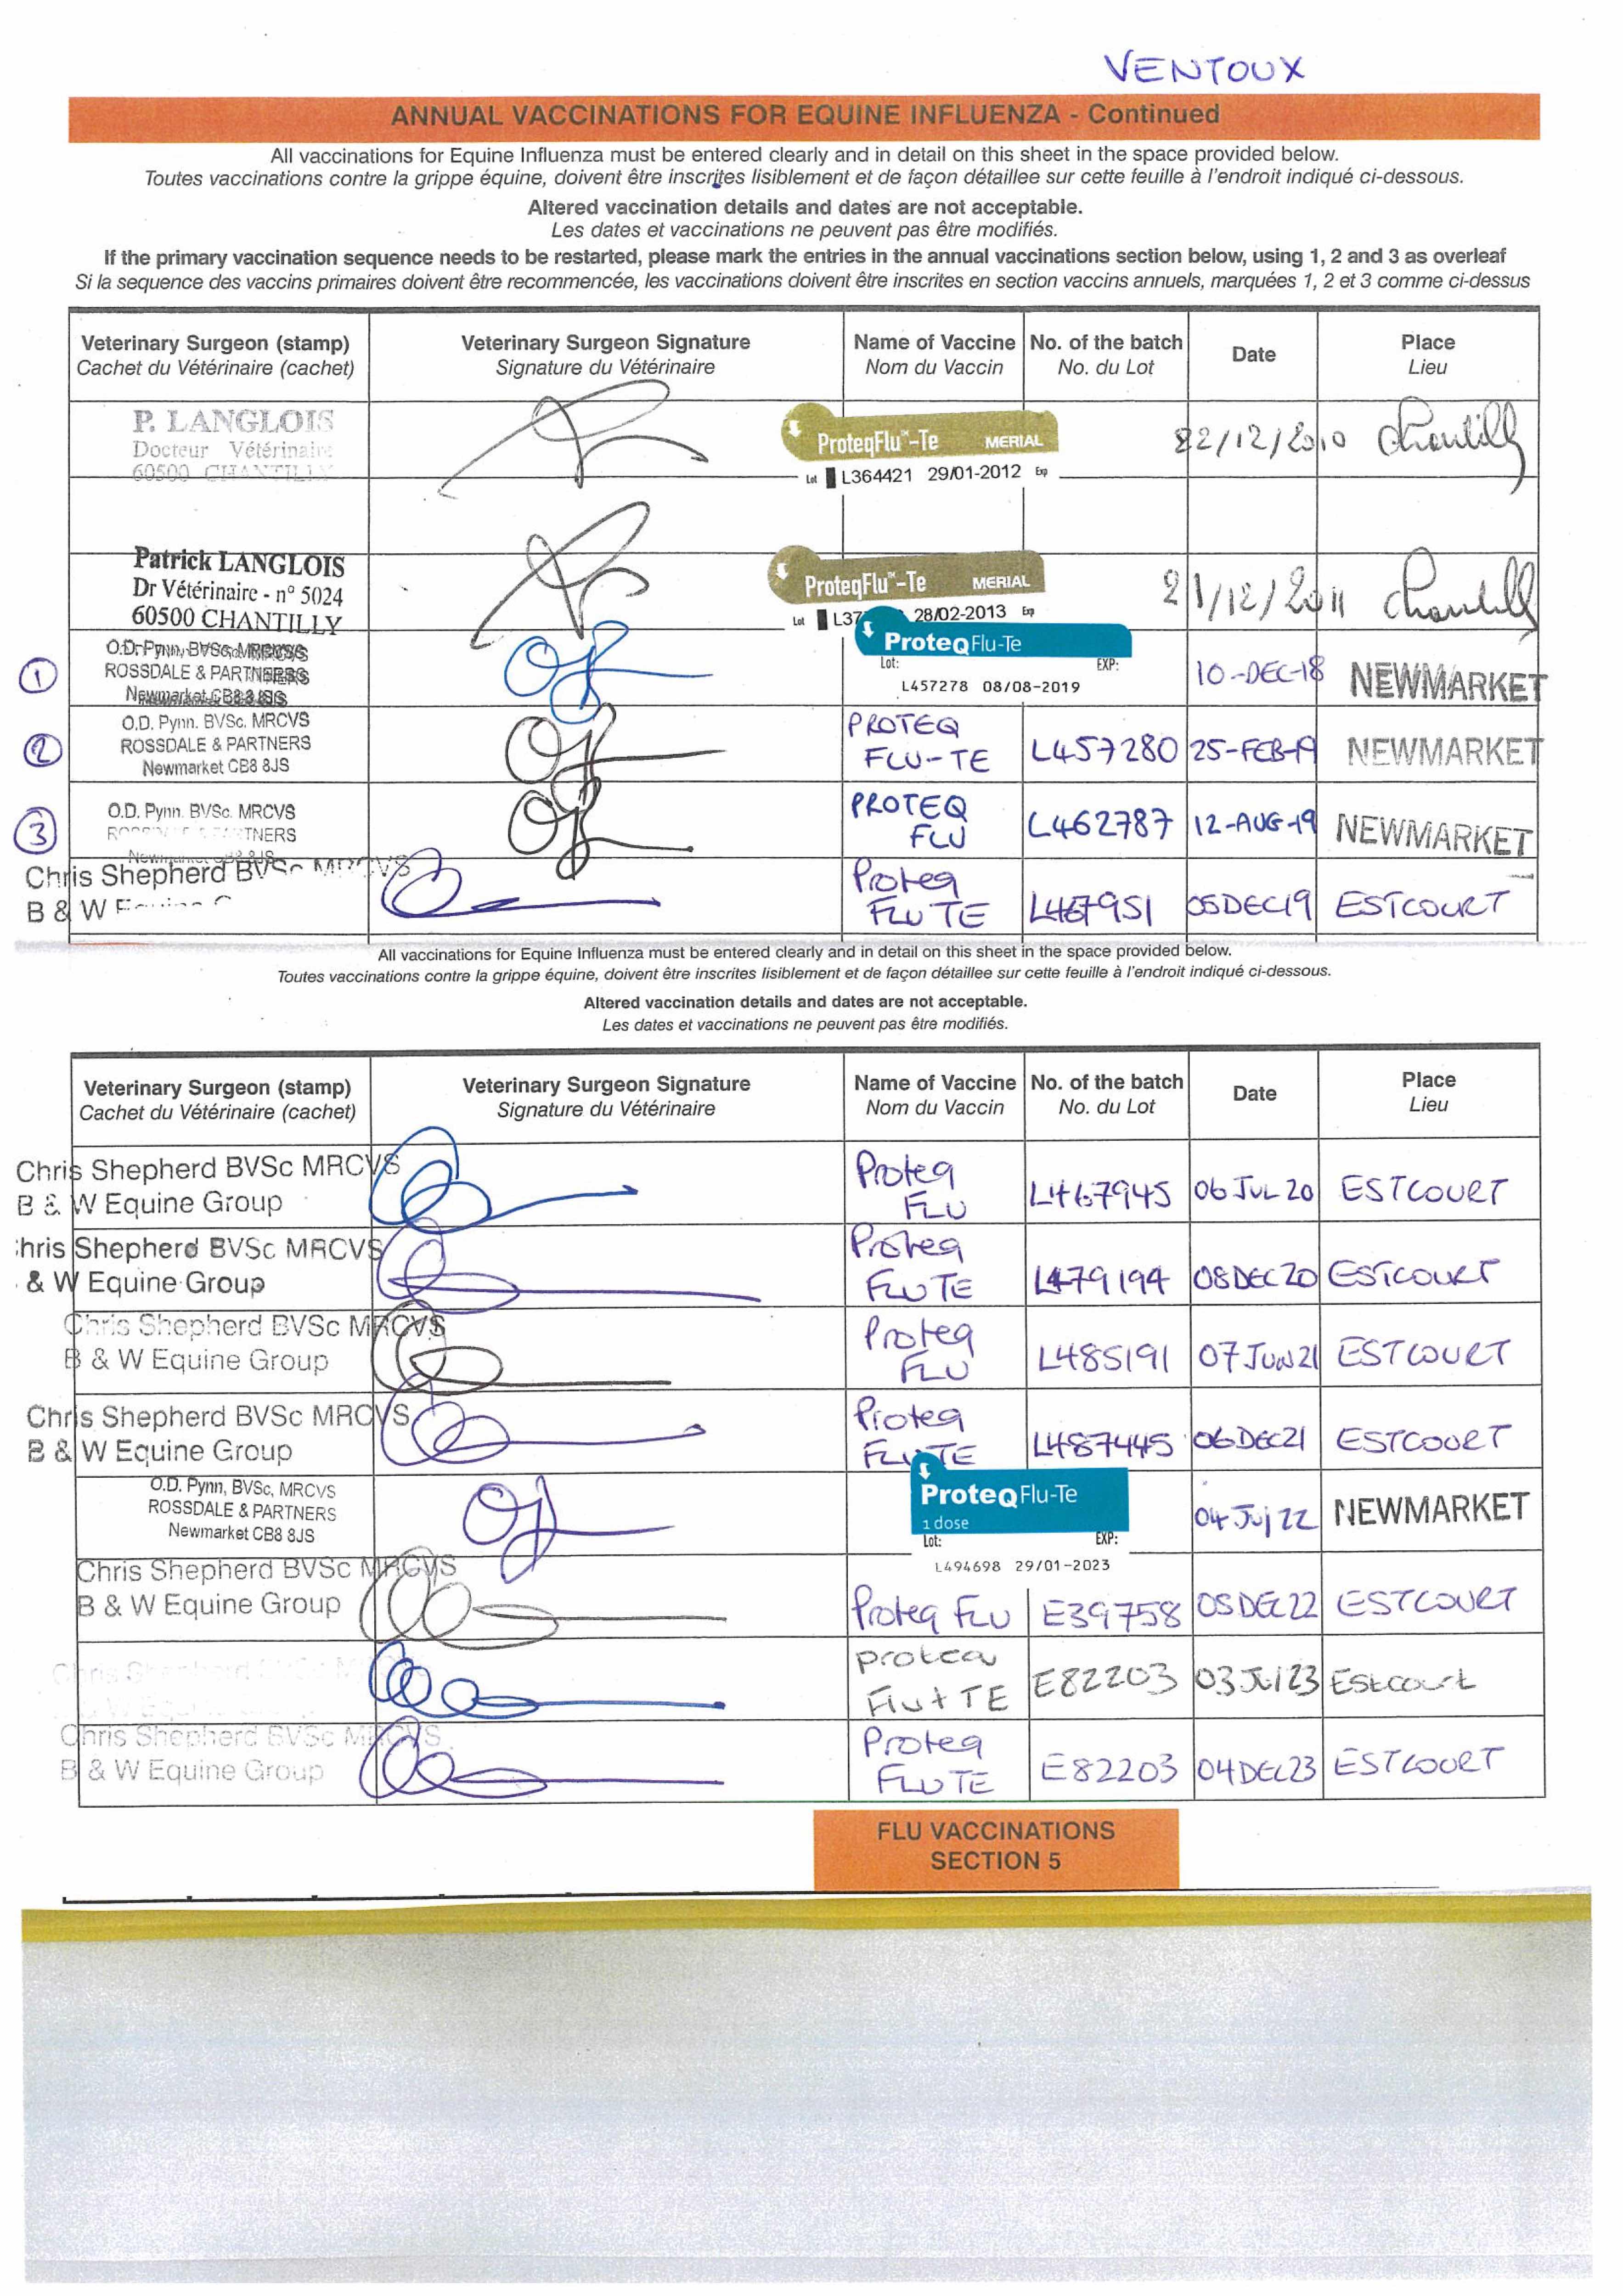 VENTOUX
ANNUAL VACCINATIONS FOR EQUINE INFLUENZA - Continued
All vaccinations for Equine Influenza must be entered clearly and in detail on this sheet in the space provided below.
Toutes vaccinations contre la grippe équine, doivent être inscrites lisiblement et de façon détaillee sur cette feuille à l'endroit indiqué ci-dessous.
Altered vaccination details and dates are not acceptable.
Les dates et vaccinations ne peuvent pas être modifiés.
If the primary vaccination sequence needs to be restarted, please mark the entries in the annual vaccinations section below, using 1, 2 and 3 as overleaf
Si la sequence des vaccins primaires doivent être recommencée, les vaccinations doivent être inscrites en section vaccins annuels, marquées 1, 2 et 3 comme ci-dessus
Veterinary Surgeon (stamp) Veterinary Surgeon Signature Name of Vaccine No. of the batch Date Place
Cachet du Vétérinaire (cachet) Signature du Vétérinaire Nom du Vaccin No. du Lot Lieu
P. LANGLOIS
Docteur Vétérinaire
60500 CHANTILLY
ProteqFlu™-Te MERIAL
Lot L364421 29/01-2012 Exp
22/12/2010 Chantilly
Patrick LANGLOIS
Dr Vétérinaire - n° 5024
60500 CHANTILLY
ProteqFlu™-Te MERIAL
Lot L37 28/02-2013 Exp
21/12/2011 Chantilly
1
O.D. Pynn, BVSc, MRCVS
ROSSDALE & PARTNERS
Newmarket CB8 8JS
ProteqFlu-Te
Lot: EXP:
L457278 08/08-2019
10-DEC-18 NEWMARKET
2
O.D. Pynn. BVSc. MRCVS
ROSSDALE & PARTNERS
Newmarket CB8 8JS
PROTEQ
FLU-TE L457280 25-FEB-19 NEWMARKET
3
O.D. Pynn. BVSc. MRCVS
TNERS
PROTEQ
FLU L462787 12-AUG-19 NEWMARKET
Chris Shepherd BVSc MRCVS
B & W
Proteq
FLU TE L467951 05DEC19 ESTCOURT
All vaccinations for Equine Influenza must be entered clearly and in detail on this sheet in the space provided below.
Toutes vaccinations contre la grippe équine, doivent être inscrites lisiblement et de façon détaillee sur cette feuille à l'endroit indiqué ci-dessous.
Altered vaccination details and dates are not acceptable.
Les dates et vaccinations ne peuvent pas être modifiés.
Veterinary Surgeon (stamp) Veterinary Surgeon Signature Name of Vaccine No. of the batch Date Place
Cachet du Vétérinaire (cachet) Signature du Vétérinaire Nom du Vaccin No. du Lot Lieu
Chris Shepherd BVSc MRCVS
B & W Equine Group
Proteq
FLU L467945 06 JUL 20 ESTCOURT
hris Shepherd BVSc MRCVS
& W Equine Group
Proteq
FLU TE L479194 08 DEC 20 ESTCOURT
Chris Shepherd BVSc MRCVS
B & W Equine Group
Proteq
FLU L485191 07 JUN 21 ESTCOURT
Chris Shepherd BVSc MRCVS
B & W Equine Group
Proteq
FLU TE L487445 06 DEC 21 ESTCOURT
O.D. Pynn, BVSc, MRCVS
ROSSDALE & PARTNERS
Newmarket CB8 8JS
ProteqFlu-Te
1 dose
Lot: EXP:
L494698 29/01-2023
04 Jul 22 NEWMARKET
Chris Shepherd BVSc MRCVS
B & W Equine Group
Proteq FLU E39758 05 DEC 22 ESTCOURT
Chris Shepherd BVSc M
W
Proteq
Flu + TE E82203 03 Jul 23 Estcourt
Chris Shepherd BVSc MRCVS
B & W Equine Group
Proteq
FLU TE E82203 04 DEC 23 ESTCOURT
FLU VACCINATIONS
SECTION 5